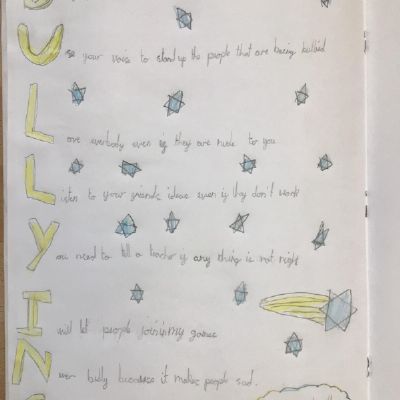 Use your voice to stand up the people that are being bullied
Love everbody even if they are rude to you
Listen to your friends ideas even if they don't work
You need to tell a teacher if any thing is not right
I will let people join my games
Never bully because it makes people sad.